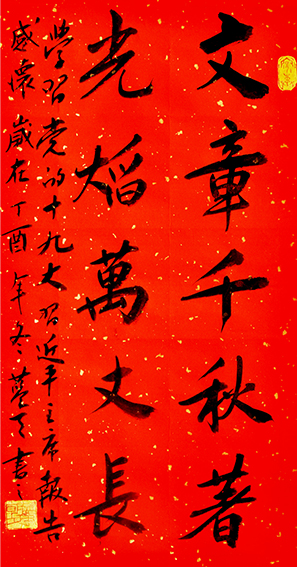 文章千秋著
光焰萬丈長
學習党的十九大習近平主席報告
感懷 歲在丁酉年冬
書之